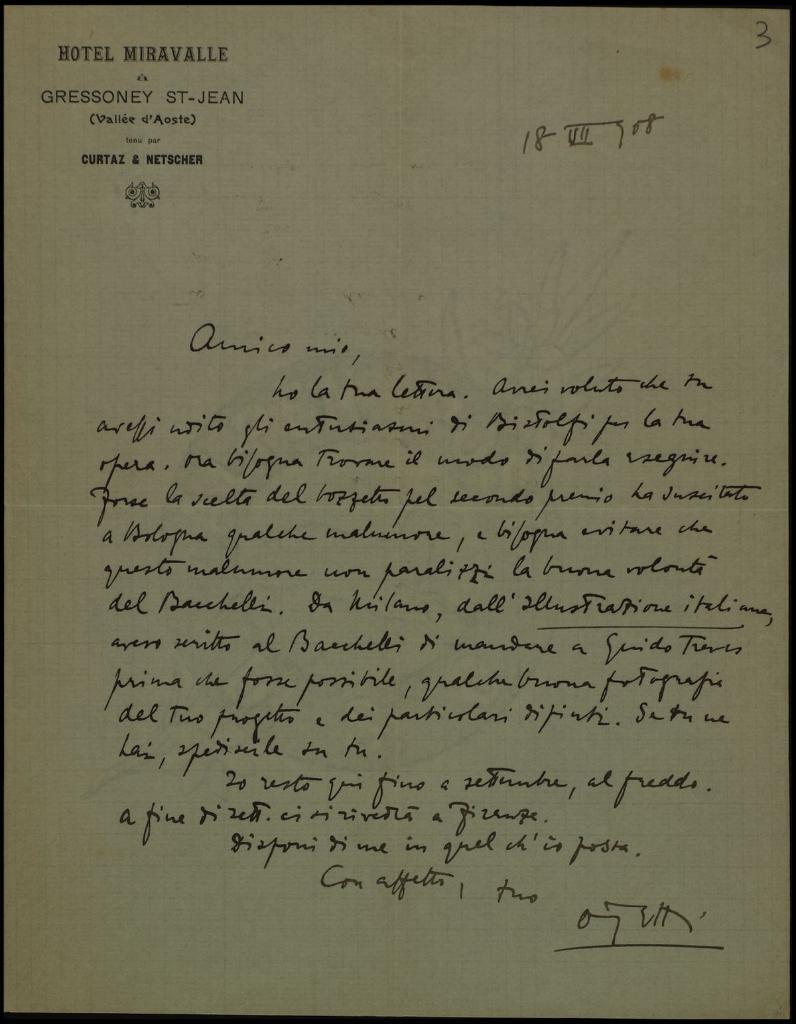 3
HOTEL MIRAVALLE
à
GRESSONEY ST-JEAN
(Vallée d'Aoste)
tenu par
CURTAZ & NETSCHER
18 VII 908
Amico mio,
ho la tua lettera. Avrei voluto che tu
avessi udito gli entusiasmi di Bistolfi per la tua
opera. Ora bisogna trovare il modo di farla eseguire.
Forse la scelta del bozzetto pel secondo premio ha suscitato
a Bologna qualche malumore, e bisogna evitare che
questo malumore non paralizzi la buona volontà
del Bacchelli. Da Milano, dall'Illustrazione italiana,
avevo scritto al Bacchelli di mandare a Guido Treves
prima che fosse possibile, qualche buona fotografia
del tuo progetto e dei particolari dipinti. Se tu ne
hai, spediscile tu.
Io resto qui fino a settembre, al freddo.
A fine di sett. ci si rivedrà a Firenze.
Disponi di me in quel ch'io possa.
Con affetto, tuo
Ojetti